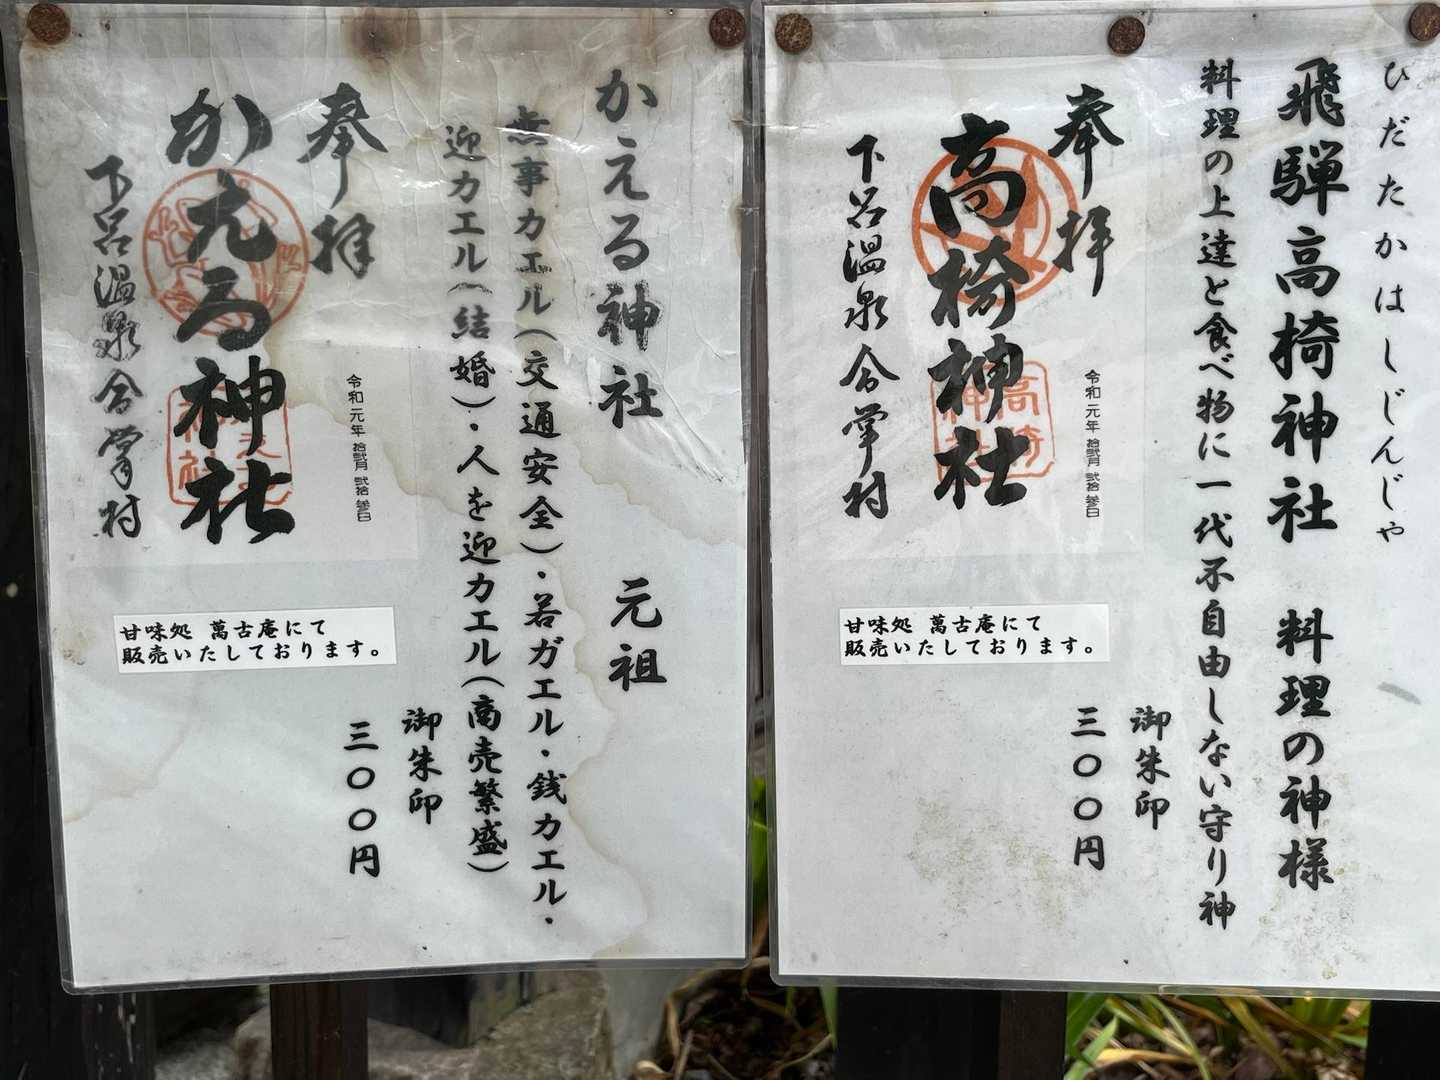 かえる神社 元祖
無事カエル(交通安全)・若ガエル・銭カエル・
迎カエル(結婚)・人を迎カエル(商売繁盛)
御朱印
三〇〇円
奉拝
令和元年 拾弐月 弐拾参日
かえる神社
下呂温泉合掌村
甘味処 萬古庵にて
販売いたしております。
ひだたかはしじんじゃ
飛騨高椅神社 料理の神様
料理の上達と食べ物に一代不自由しない守り神
御朱印
三〇〇円
奉拝
令和元年 拾弐月 弐拾参日
高椅神社
高椅
神社
下呂温泉合掌村
甘味処 萬古庵にて
販売いたしております。